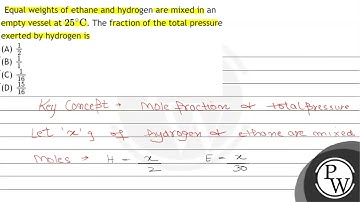 Equal weights of ethane and hydrogen are mixed in an
empty vessel at 25°C. The fraction of the total pressure
exerted by hydrogen is
(A) 1/2
(B) 1/1
(C) 1/16
(D) 15/16
Key Concept → Mole fraction & total pressure
Let 'x' g of hydrogen & ethane are mixed
moles → H = x/2 E = x/30
P
W